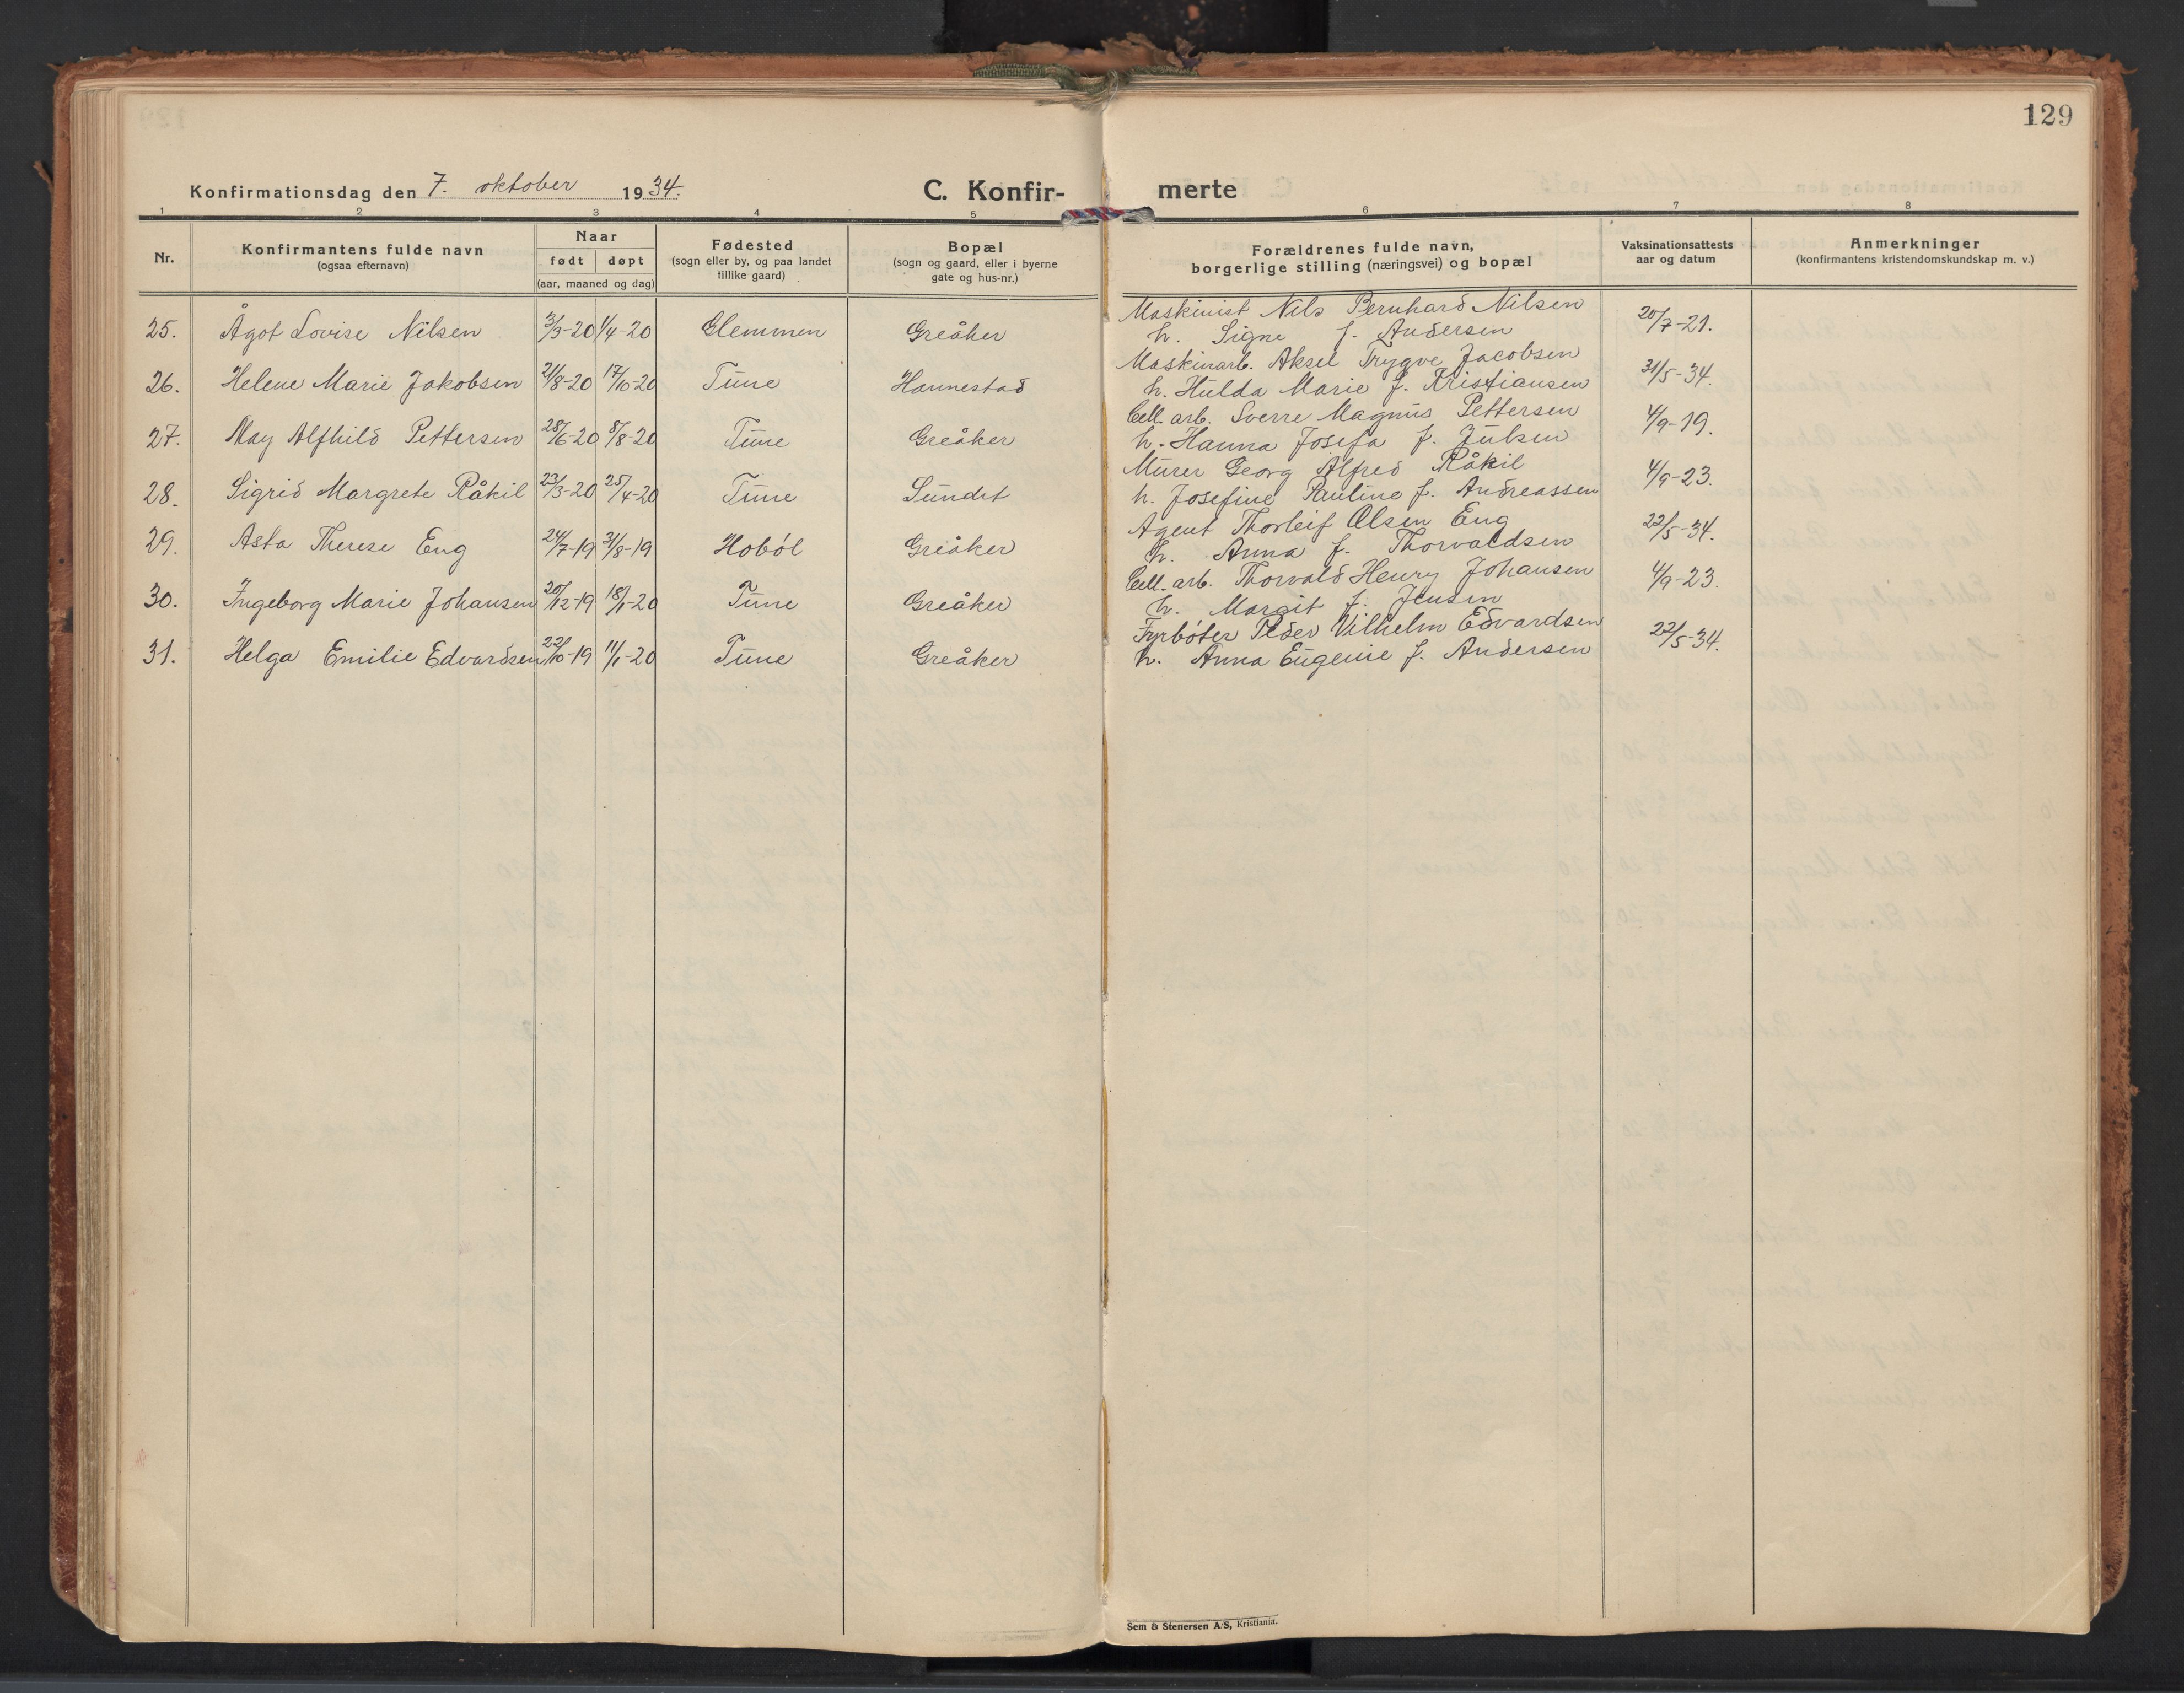 129
Konfirmationsdag den 7. oktober 1934.
C. Konfir- merte
1 2 3 4 5 6 7 8
Nr.
Konfirmantens fulde navn
(ogsaa efternavn)
Naar
født døpt
(aar, maaned og dag)
Fødested
(sogn eller by, og paa landet
tillike gaard)
Bopæl
(sogn og gaard, eller i byerne
gate og hus-nr.)
Forældrenes fulde navn,
borgerlige stilling (næringsvei) og bopæl
Vaksinationsattests
aar og datum
Anmerkninger
(konfirmantens kristendomskundskap m. v.)
25. Ågot Lovise Nilsen 3/3-20 1/4-20 Glemmen Greåker Maskinist Nils Bernhard Nilsen 20/7-21.
h. Signe f. Andersen
26. Helene Marie Jakobsen 21/8-20 17/10-20 Tune Hannestad Maskinarb. Aksel Trygve Jacobsen 31/5-34.
h. Hulda Marie f. Kristiansen
27. May Alfhild Pettersen 28/6-20 8/8-20 Tune Greåker Cell. arb. Sverre Magnus Pettersen 4/9-19.
h. Hanna Josefa f. Julsen
28. Sigrid Margrete Råkil 23/3-20 25/4-20 Tune Sundet Murer Georg Alfred Råkil 4/9-23.
h. Josefine Pauline f. Andreassen
29. Asta Therese Eng 24/7-19 31/8-19 Hobøl Greåker Agent Thorleif Olsen Eng 22/5-34.
h. Anna f. Thorvaldsen
30. Ingeborg Marie Johansen 20/12-19 18/1-20 Tune Greåker Cell. arb. Thorvald Henry Johansen 4/9-23.
h. Margit f. Jensen
31. Helga Emilie Edvardsen 22/10-19 11/1-20 Tune Greåker Fyrbøter Peder Vilhelm Edvardsen 22/5-34.
h. Anna Eugenie f. Andersen
Sem & Stenersen A/S, Kristiania.